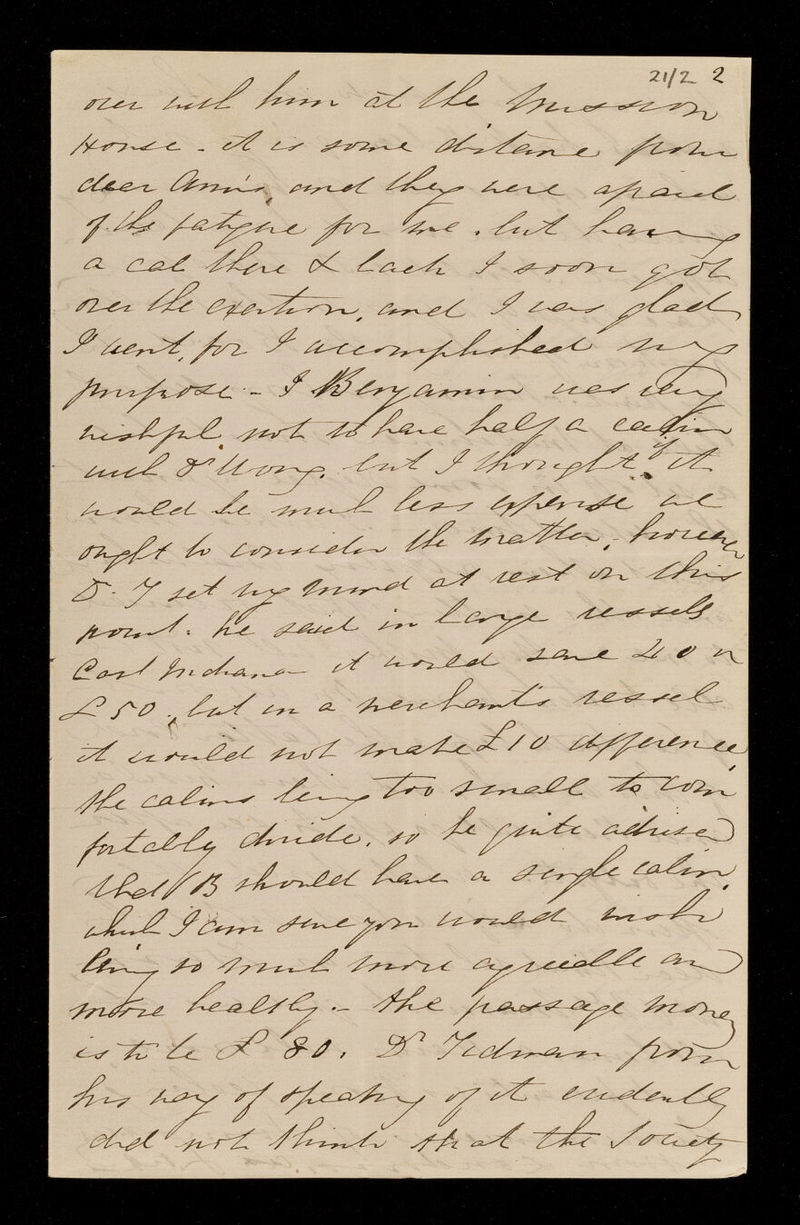 21/2 2
over with him at the Mission
House - it is some distance from
dear Ann's, and they were afraid
of the fatigue for me. but having
a cab there & back I soon got
over the exertion, and I was glad
I went, for I accomplished my
purpose - Benjamin was very
wishful not to have half a cabin
with Dr Wong. but I thought if it
would be much less expense we
ought to consider the matter, however
Dr. T set my mind at rest on this
point. he said in large vessels
East Indiana it would save 40 or
£50, but in a merchant's vessel
it would not make £10 difference,
the cabins being too small to com
fortably divide. so he quite advised
that B should have a single cabin,
which I am sure you would wish
being so much more agreeable and
more healthy. - the passage money
is to be £80. Dr Tidman from
his way of speaking of it evidently
did not think that the Society